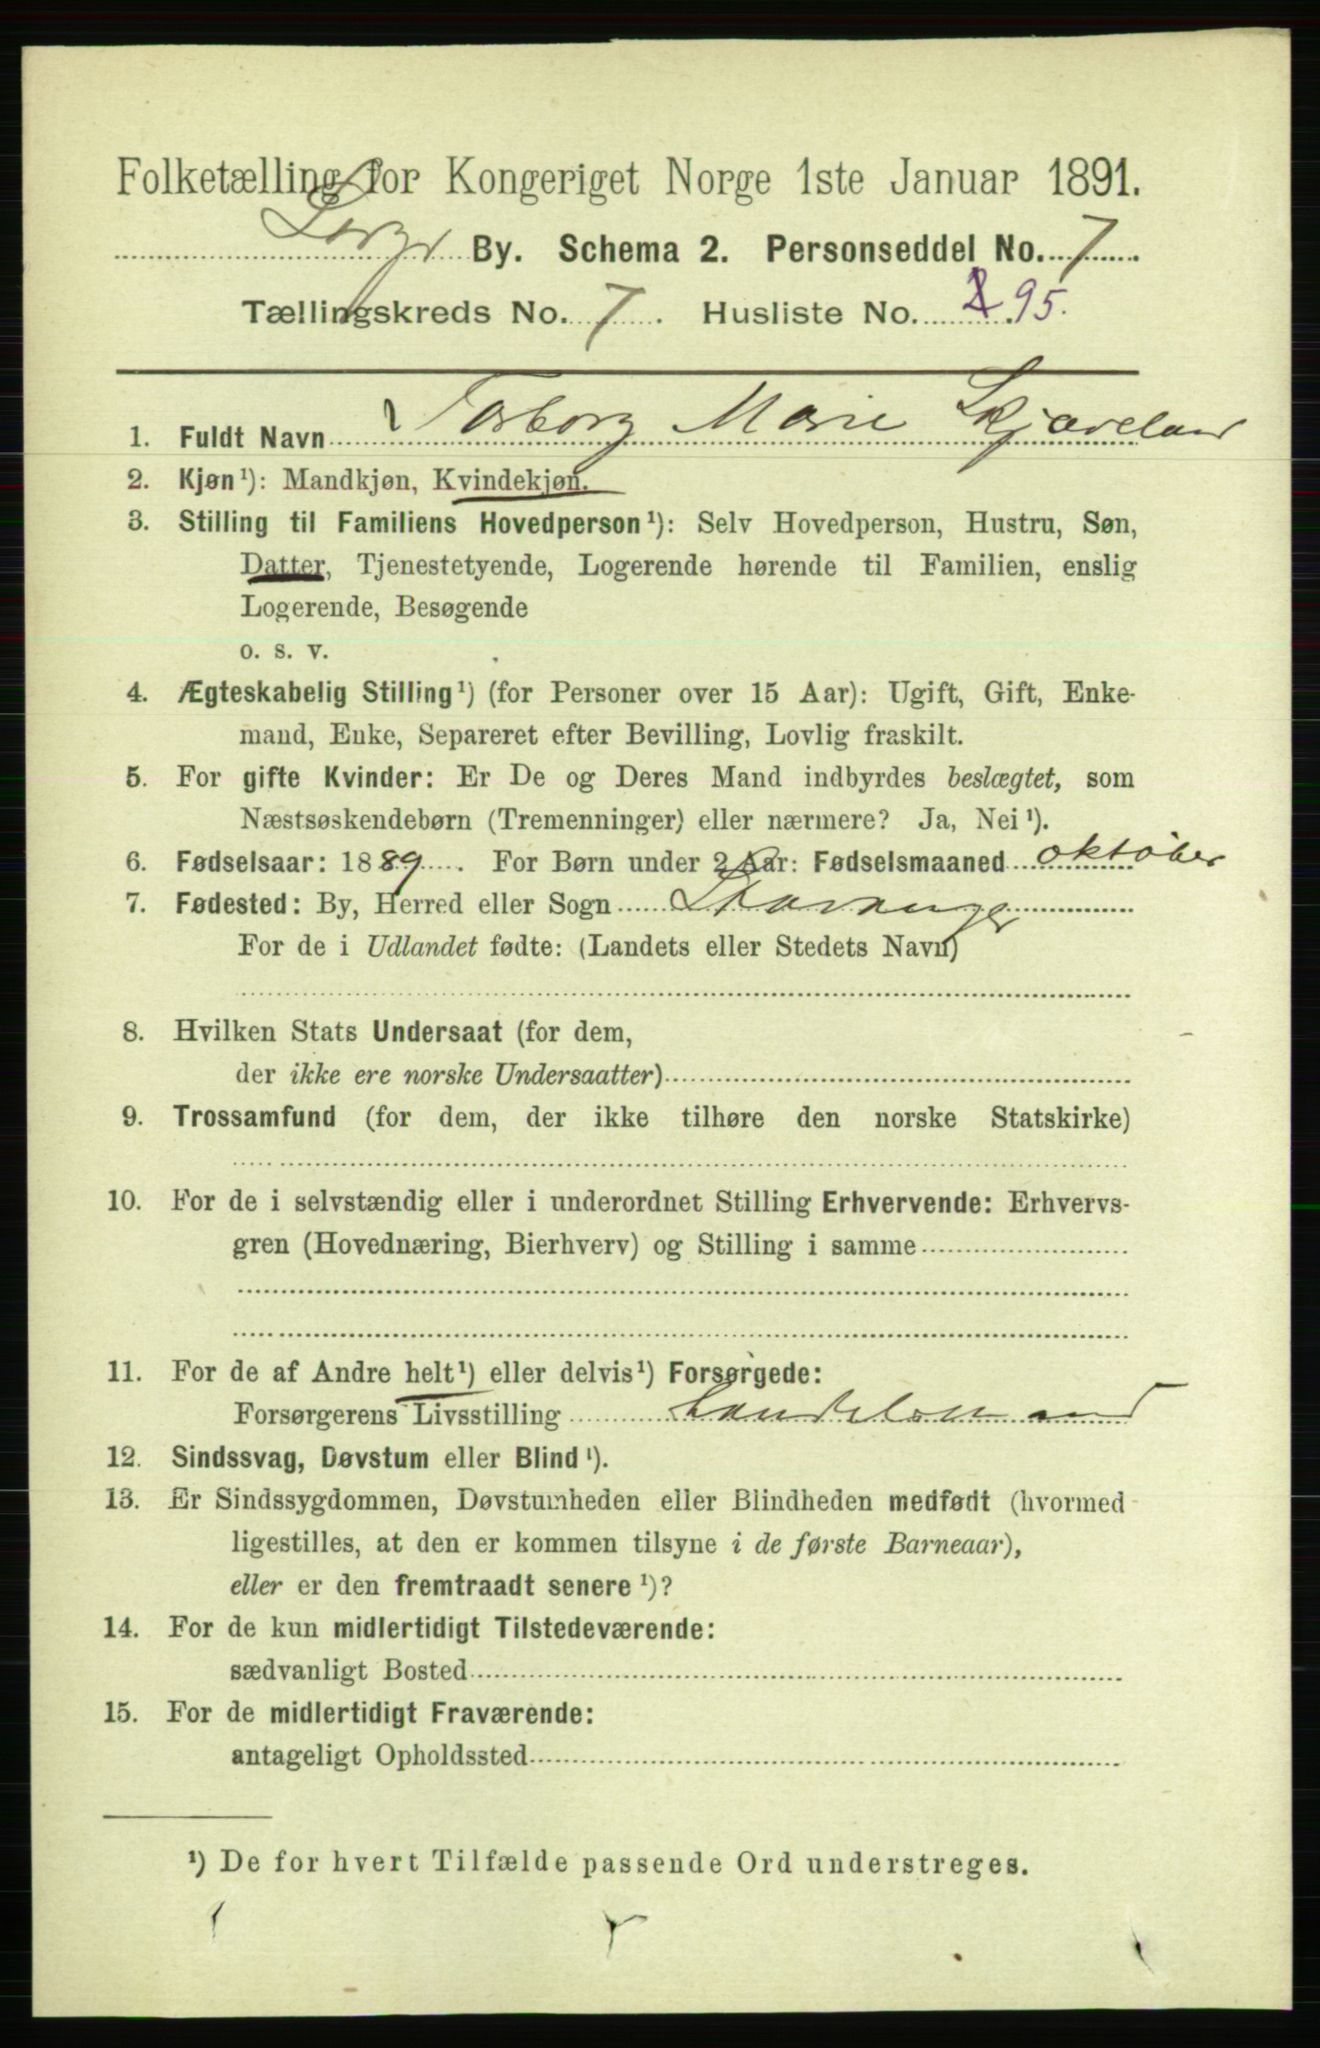 Folketælling for Kongeriget Norge 1ste Januar 1891.
By. Schema 2. Personseddel No. 7
Tællingskreds No. 7. Husliste No. 95.
1. Fuldt Navn Torborg Marie Skjæveland
2. Kjøn¹): Mandkjøn, Kvindekjøn.
3. Stilling til Familiens Hovedperson¹): Selv Hovedperson, Hustru, Søn,
Datter, Tjenestetyende, Logerende hørende til Familien, enslig
Logerende, Besøgende
o. s. v.
4. Ægteskabelig Stilling¹) (for Personer over 15 Aar): Ugift, Gift, Enke-
mand, Enke, Separeret efter Bevilling, Lovlig fraskilt.
5. For gifte Kvinder: Er De og Deres Mand indbyrdes beslægtet, som
Næstsøskendebørn (Tremenninger) eller nærmere? Ja, Nei¹).
6. Fødselsaar: 1889. For Børn under 2 Aar: Fødselsmaaned oktober
7. Fødested: By, Herred eller Sogn Stavanger
For de i Udlandet fødte: (Landets eller Stedets Navn)
8. Hvilken Stats Undersaat (for dem,
der ikke ere norske Undersaatter)
9. Trossamfund (for dem, der ikke tilhøre den norske Statskirke)
10. For de i selvstændig eller i underordnet Stilling Erhvervende: Erhvervs-
gren (Hovednæring, Bierhverv) og Stilling i samme
11. For de af Andre helt¹) eller delvis¹) Forsørgede:
Forsørgerens Livsstilling Handelsmand
12. Sindssvag, Døvstum eller Blind¹).
13. Er Sindssygdommen, Døvstumheden eller Blindheden medfødt (hvormed
ligestilles, at den er kommen tilsyne i de første Barneaar),
eller er den fremtraadt senere¹)?
14. For de kun midlertidigt Tilstedeværende:
sædvanligt Bosted
15. For de midlertidigt Fraværende:
antageligt Opholdssted
¹) De for hvert Tilfælde passende Ord understreges.